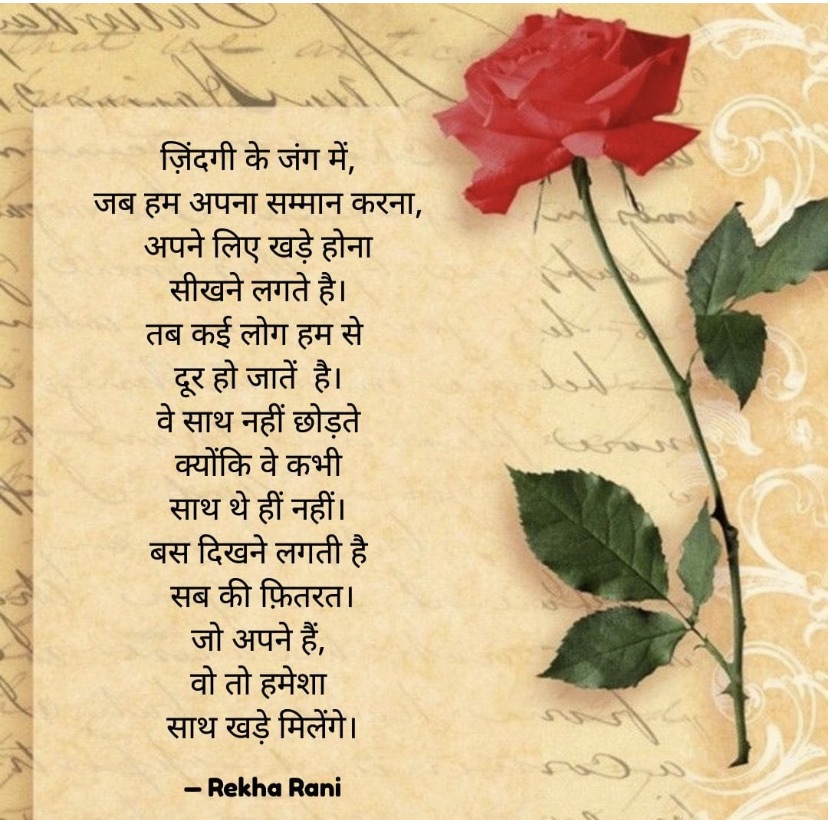 ज़िंदगी के जंग में,
जब हम अपना सम्मान करना,
अपने लिए खड़े होना
सीखने लगते है।
तब कई लोग हम से
दूर हो जातें  है।
वे साथ नहीं छोड़ते
क्योंकि वे कभी
साथ थे हीं नहीं।
बस दिखने लगती है
सब की फ़ितरत।
जो अपने हैं,
वो तो हमेशा
साथ खड़े मिलेंगे।
— Rekha Rani